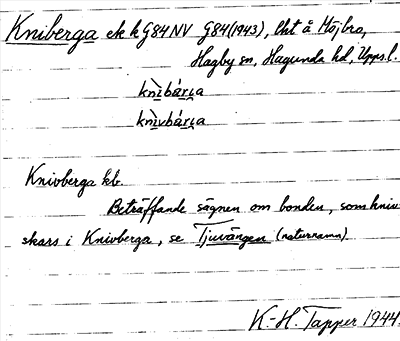 Kniberga ek k G84NV G84(1943), Cht å Möjbro,
Hagby sn, Hagunda hd, Upps. l.
knìbárɩa
knìvbárɩa
Knivberga kb.
Beträffande sägnen om bonden, som kniv-
skars i Knivberga, se Tjuvängen (naturnamn)
K.-H. Tapper 1944.